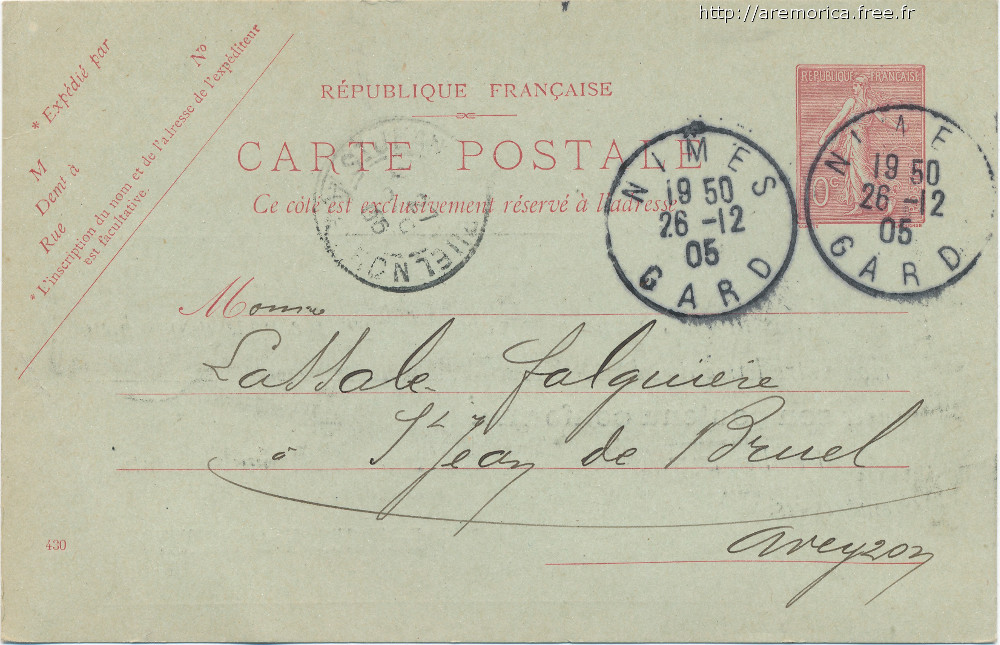 http://aremorica.free.fr
* Expédié par
M
Demt à
Rue
No
* L'inscription du nom et de l'adresse de l'expéditeur
est facultative.
RÉPUBLIQUE FRANÇAISE
CARTE POSTALE
Ce côté est exclusivement réservé à l'adresse
RÉPUBLIQUE FRANÇAISE
NIMES
19 50
26 -12
05
GARD
NIMES
19 50
26 -12
05
GARD
Monsieur
Lassale falguiere
à St Jean de Bruel
Aveyron
430